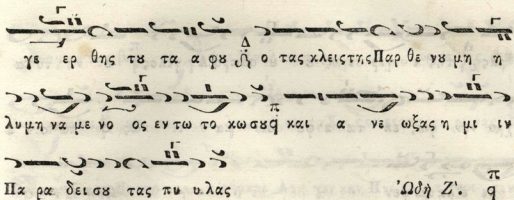 γε ερ θης τυ τα α φυ ο τας κλειστης Παρ θε νυ μη η
λυ μη να με νο ος εν τω το κω συ και α νε ωξας η μι ιν
Πα ρα δει σου τας πυ υ λας Ὠδὴ Ζ'.